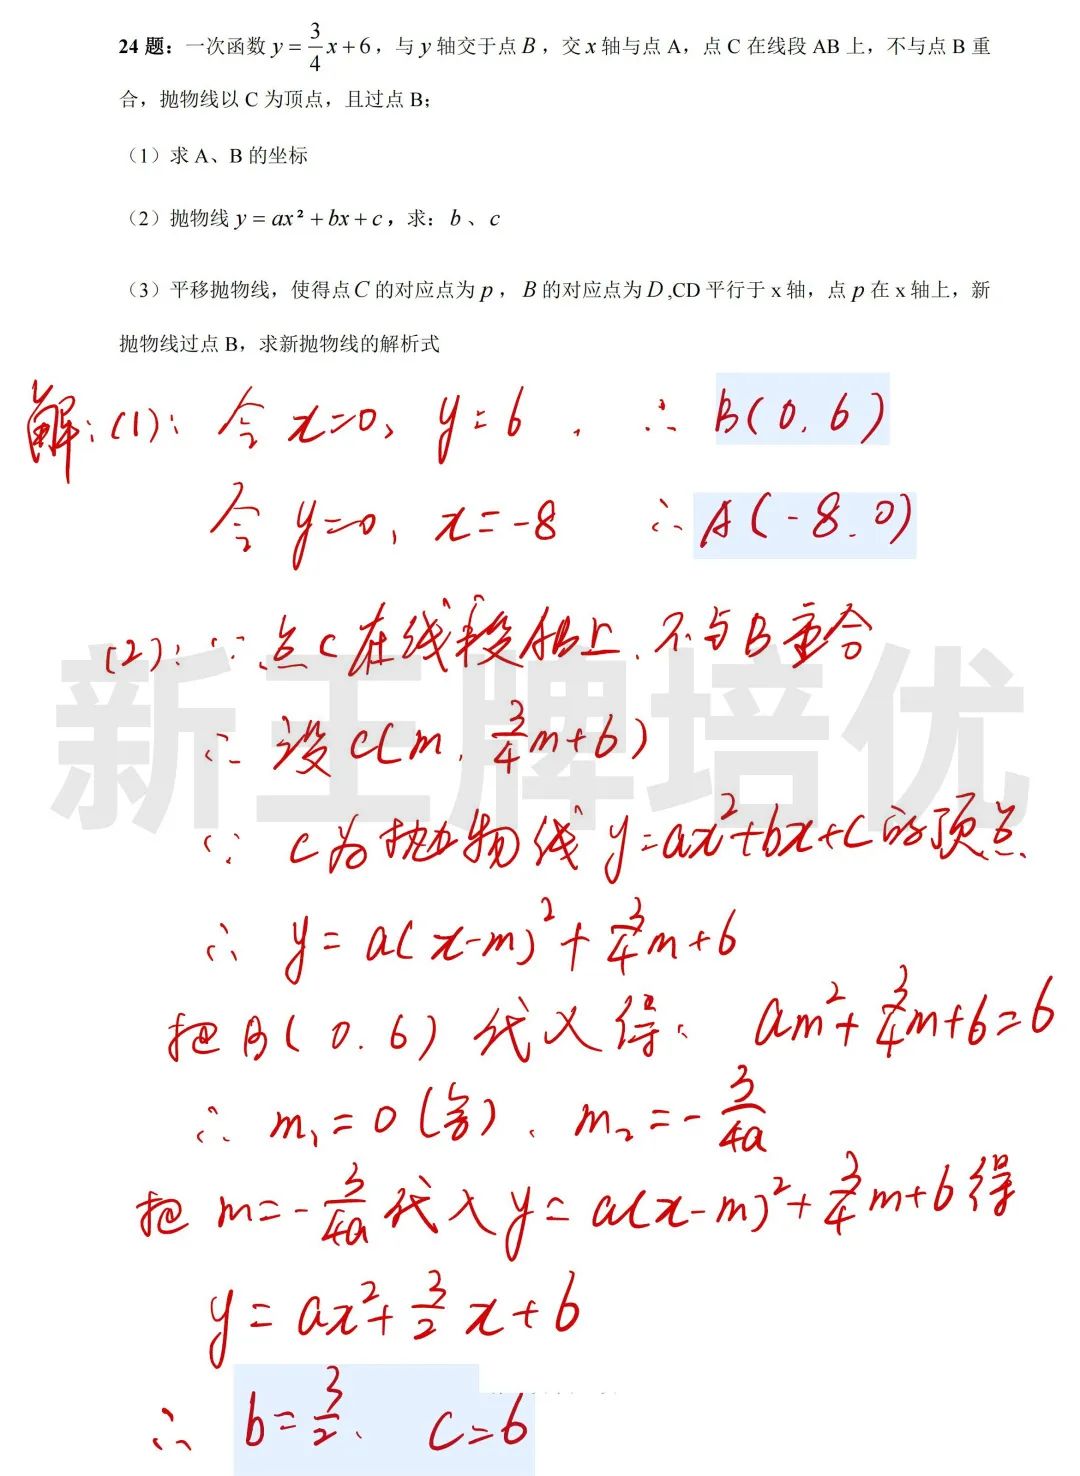 24 题：一次函数 y = 3/4 x + 6，与 y 轴交于点 B，交 x 轴与点 A，点 C 在线段 AB 上，不与点 B 重
合，抛物线以 C 为顶点，且过点 B；
（1）求 A、B 的坐标
（2）抛物线 y = ax² + bx + c，求：b 、c
（3）平移抛物线，使得点 C 的对应点为 p，B 的对应点为 D ,CD 平行于 x 轴，点 p 在 x 轴上，新
抛物线过点 B，求新抛物线的解析式
解：(1)：令 x=0、y=6 ，∴ B(0, 6)
令 y=0, x=-8 ∴ A(-8, 0)
(2)：∵ 点C在线段AB上，不与B重合
∴ 设 C(m, 3/4 m+6)
∵ C为抛物线 y=ax²+bx+c的顶点
∴ y=a(x-m)²+3/4 m+6
把B(0, 6)代入得、 am²+3/4 m+6=6
∴ m₁=0(舍)、m₂=-3/4a
把 m=-3/4a 代入 y=a(x-m)²+3/4 m+6得
y=ax²+3/2 x+6
∴ b=3/2、 c=6
新王牌培优